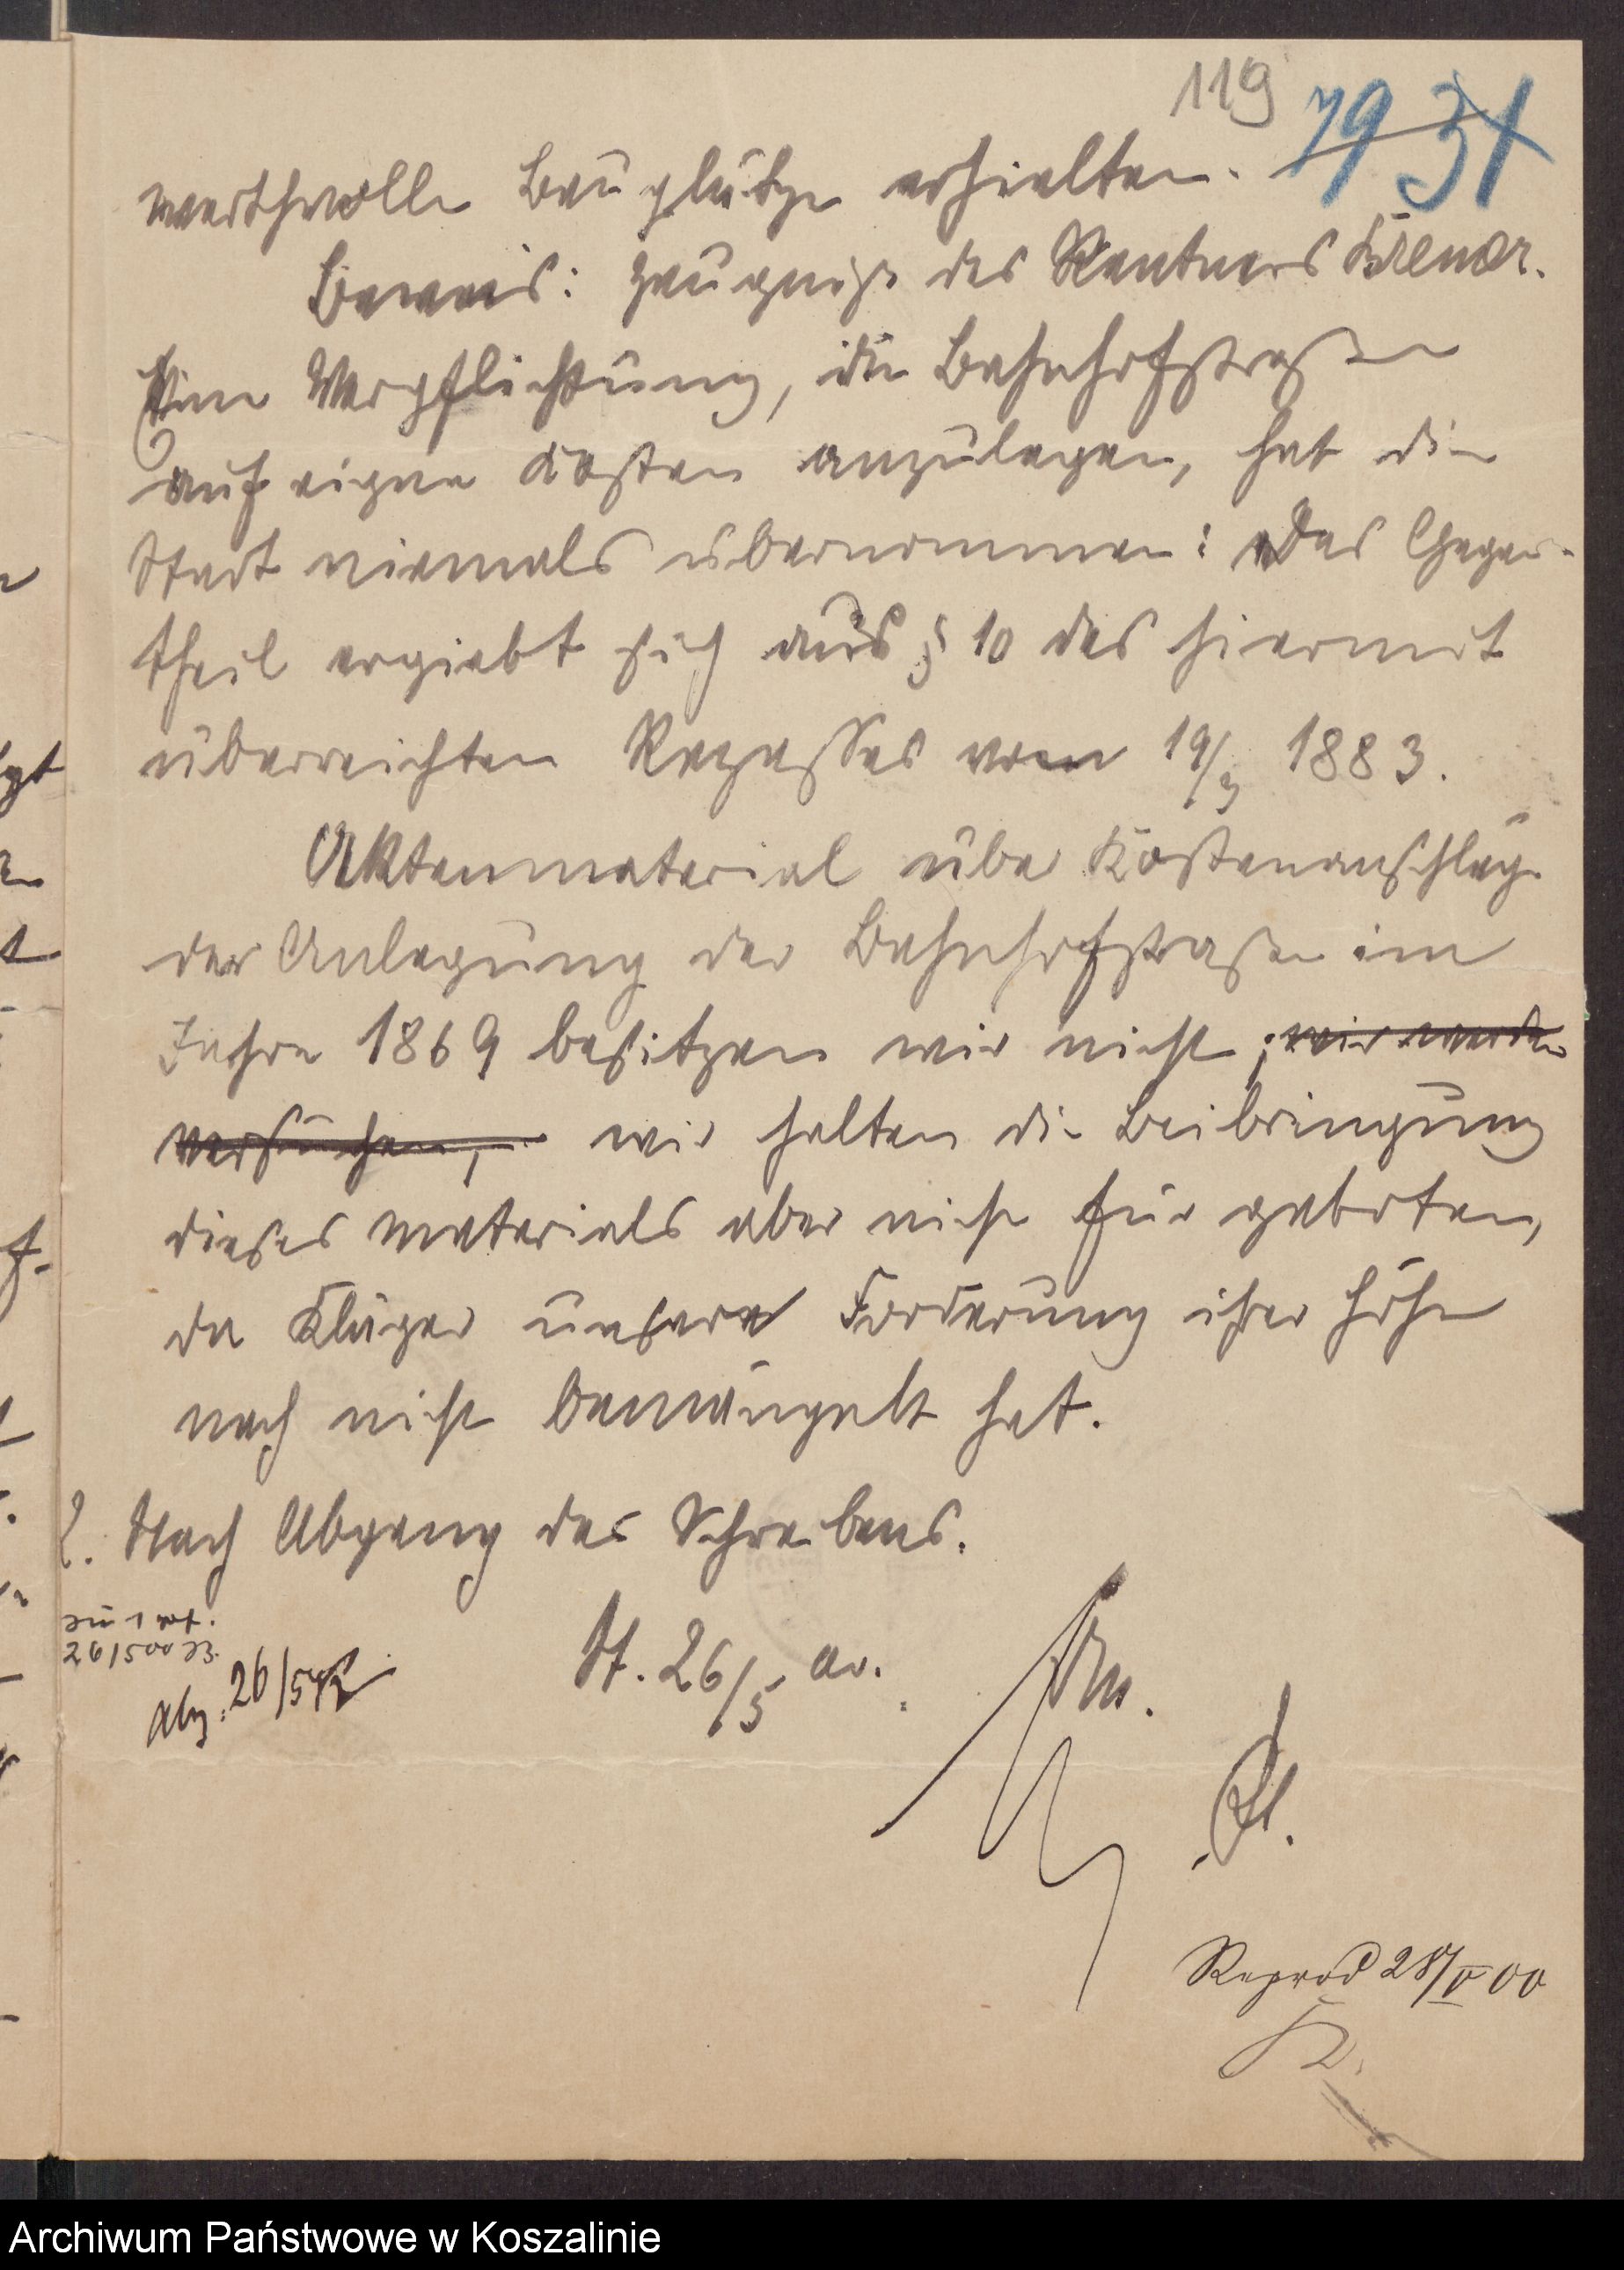 119
79 31
werthvolle Bauplätze erhielten.
Beweis: Zeugniß des Rentners Kremer.
Eine Verpflichtung, die Bahnhofstraße
auf eigene Kosten anzulegen, hat die
Stadt niemals übernommen: Das Gegen-
theil ergiebt sich aus § 10 des hiermit
überreichten Rezesses vom 19/3 1883.
Aktenmaterial über Kostenanschläge
der Anlegung der Bahnhofstraße im
Jahre 1869 besitzen wir nicht; wir werden
versuchen, wir halten die Beibringung
dieses Materials aber nicht für geboten,
da Kläger unsere Forderung ihrer Höhe
nach nicht bemängelt hat.
2. Nach Abgang des Schreibens.
zu 1
26/5 00
Abg. 26/5
St. 26/5 00.
Reprod 28/V 00
Archiwum Państwowe w Koszalinie